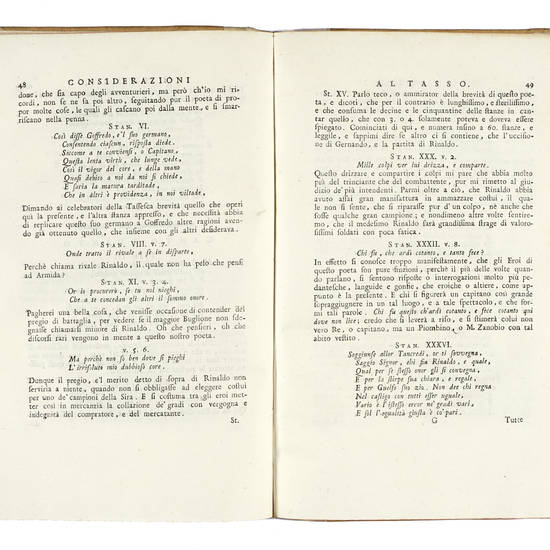 48 CONSIDERAZIONI
done, che sia capo degli avventurieri, ma però ch'io mi ri-
cordi, non se ne fa poi altro, seguitando pur il poeta di propor-
por molte cose, le quali gli cascano poi dalla mente, e si smar-
riscono nella penna.
STAN. VI.
Così disse Goffredo, e'l suo germano,
Consentendo ciascun, risposta diede.
Siccome a te conviensi, o Capitano,
Questa lenta virtù, che lunge vede,
Così il vigor del core, e della mano
Quasi debito a noi da noi si chiede,
E saria la matura tarditade,
Che in altri è providenza, in noi viltade.
Dimando ai celebratori della Tassesca brevità quello che operi
qui la presente, e l'altra stanza appresso, e che necessità abbia
di replicare questo suo germano a Goffredo altre ragioni aven-
do già ottenuto quello, che insieme con gli altri desiderava.
STAN. VIII. v. 7.
Onde tratto il rivale a se in disparte,
Perchè chiama rivale Rinaldo, il quale non ha pelo che pensi
ad Armida?
STAN. XI. v. 3. 4.
Or io procurerò, se tu nol nieghi,
Che a te concedan gli altri il sommo onore.
Pagherei una bella cosa, che venisse occasion di contender del
pregio di battaglia, per vedere se il maggior Buglione non sde-
gnasse chiamarsi minore di Rinaldo. Oh che pensieri, oh che
discorsi rari vengono in mente a questo nostro poeta.
v. 5. 6.
Ma perchè non so ben dove si pieghi
L'irrisoluto mio dubbioso core.
Dunque il pregio, e'l merito detto di sopra di Rinaldo non
serviria a niente, quando non si obbligasse ad eleggere costui
per uno de' campioni della Sira. E si costuma tra gli eroi met-
ter così in mercanzia la collazione de' gradi con vergogna e
indegnità del compratore, e del mercatante.
St.
AL TASSO. 49
St. XV. Parlo teco, o ammirator della brevità di questo poe-
ta, e dicoti, che per il contrario è lunghissimo, e sterilissimo,
e che consuma le decine e le cinquantine delle stanze in can-
tar quello, che con 3. o 4. solamente poteva e doveva essere
spiegato. Cominciati di qui, e numera insino a 60. stanze, e
leggile, e sappimi dire se altro ci si contiene, che l'uccisio-
ne di Gernando, e la partita di Rinaldo.
STAN. XXX. v. 2.
Mille colpi ver lui drizza, e comparte.
Questo drizzare e compartire i colpi mi pare che abbia molto
più del trinciante che del combattente, pur mi rimetto al giudi-
zio de' più intendenti. Parmi oltre a ciò, che Rinaldo abbia
avuto assai gran manifattura in ammazzare costui, il qua-
le non si sente, che si riparasse pur d'un colpo, nè anche che
fosse qualche gran campione; e nondimeno altre volte sentire-
mo, che il medesimo Rinaldo sarà grandissima strage di valoro-
sissimi soldati con poca fatica.
STAN. XXXII. v. 8.
Chi sie, che ardì cotanto, e tanto fece?
In effetto si conosce troppo manifestamente, che gli Eroi di
questo poeta son pure finzioni, perchè il più delle volte quan-
do parlano, o operano, lo fanno in maniere molto più pe-
dantesche, languide e gonfie, che eroiche o altiere, come ap-
punto è la presente. E chi si figurerà un capitano così grande
sopraggiugnere in un tal luogo, e a tale spettacolo, e che for-
mi tali parole. Chi fu questo ch'ardì cotanto, e fece cotanto qui
dove non lice; credo che si leverà a riso, e si stimerà colui non
vero Re, o capitano, ma un Piombino, o M. Zanobio con tal
abito vestito.
STAN. XXXVI.
Soggiunse allor Tancredi, or ti sovvegna,
Saggio Signor, chi sia Rinaldo, e quale,
Qual per se stesso onor gli si convegna,
E per la stirpe sua chiara, e regale,
E per Guelfo suo zio. Non dee chi regna
Nel castigo con tutti esser uguale,
Vario è l'istesso error ne' gradi varj,
E sol l'egualità giusta è co' pari.
G Tutte